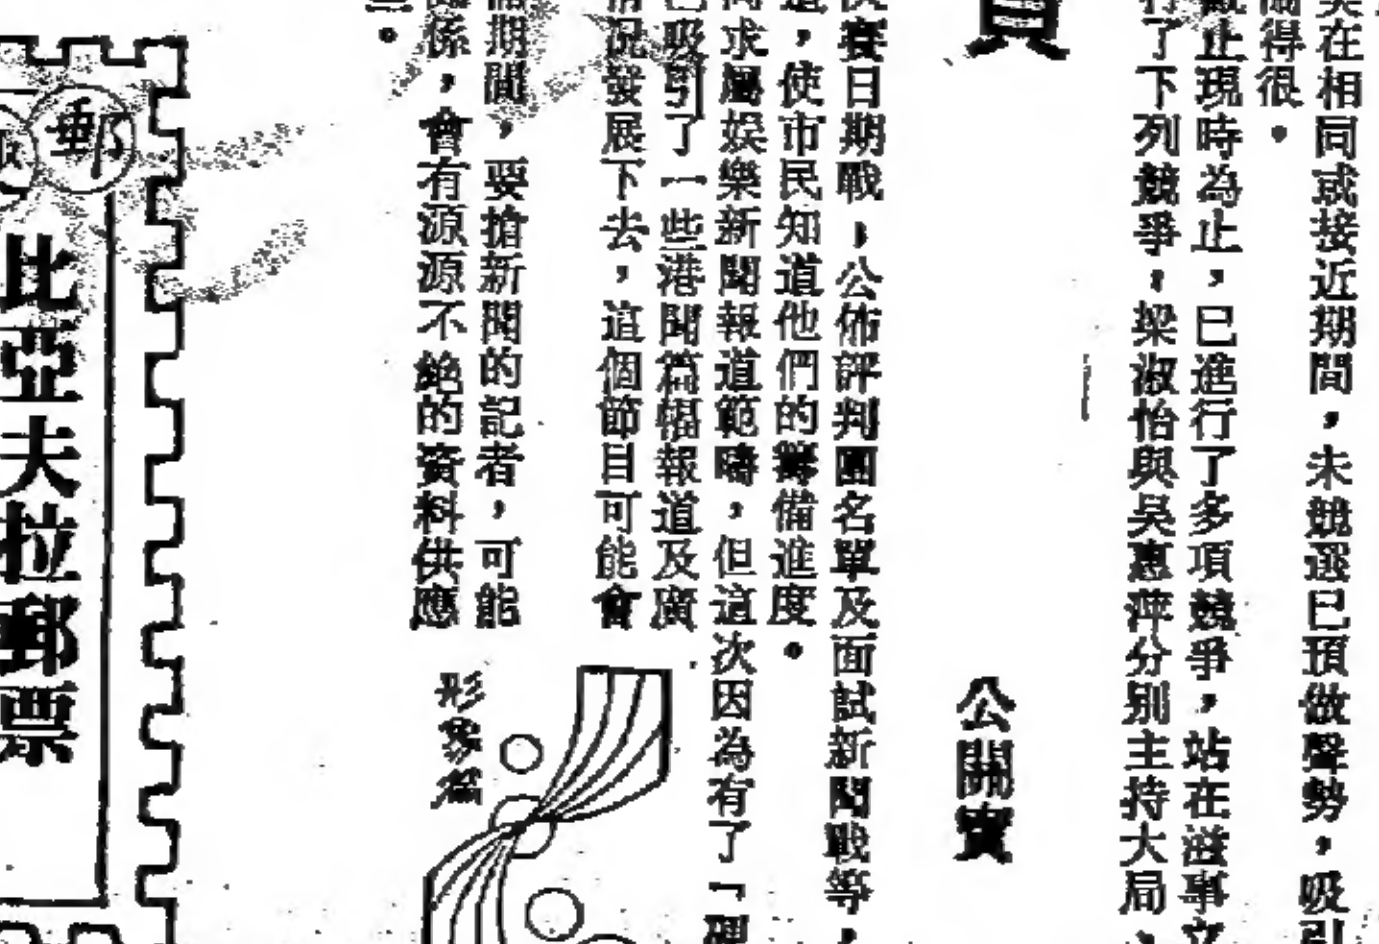 美在相同或接近期間，未競選已預做聲勢，吸引
鬧得很。
截止現時為止，已進行了多項競爭，站在滋事立
行了下列競爭，梁淑怡與吳惠萍分別主持大局、
員
公開賽
決賽日期戰，公佈評判團名單及面試新聞戰等，
道，使市民知道他們的籌備進度。
求屬娛樂新聞報道範疇，但這次因為有了「硬
已吸引了一些港聞篇幅報道及廣
情況發展下去，這個節目可能會
期間，要搶新聞的記者，可能
關係，會有源源不絕的資料供應
。
形象篇
郵
比亞夫拉郵票